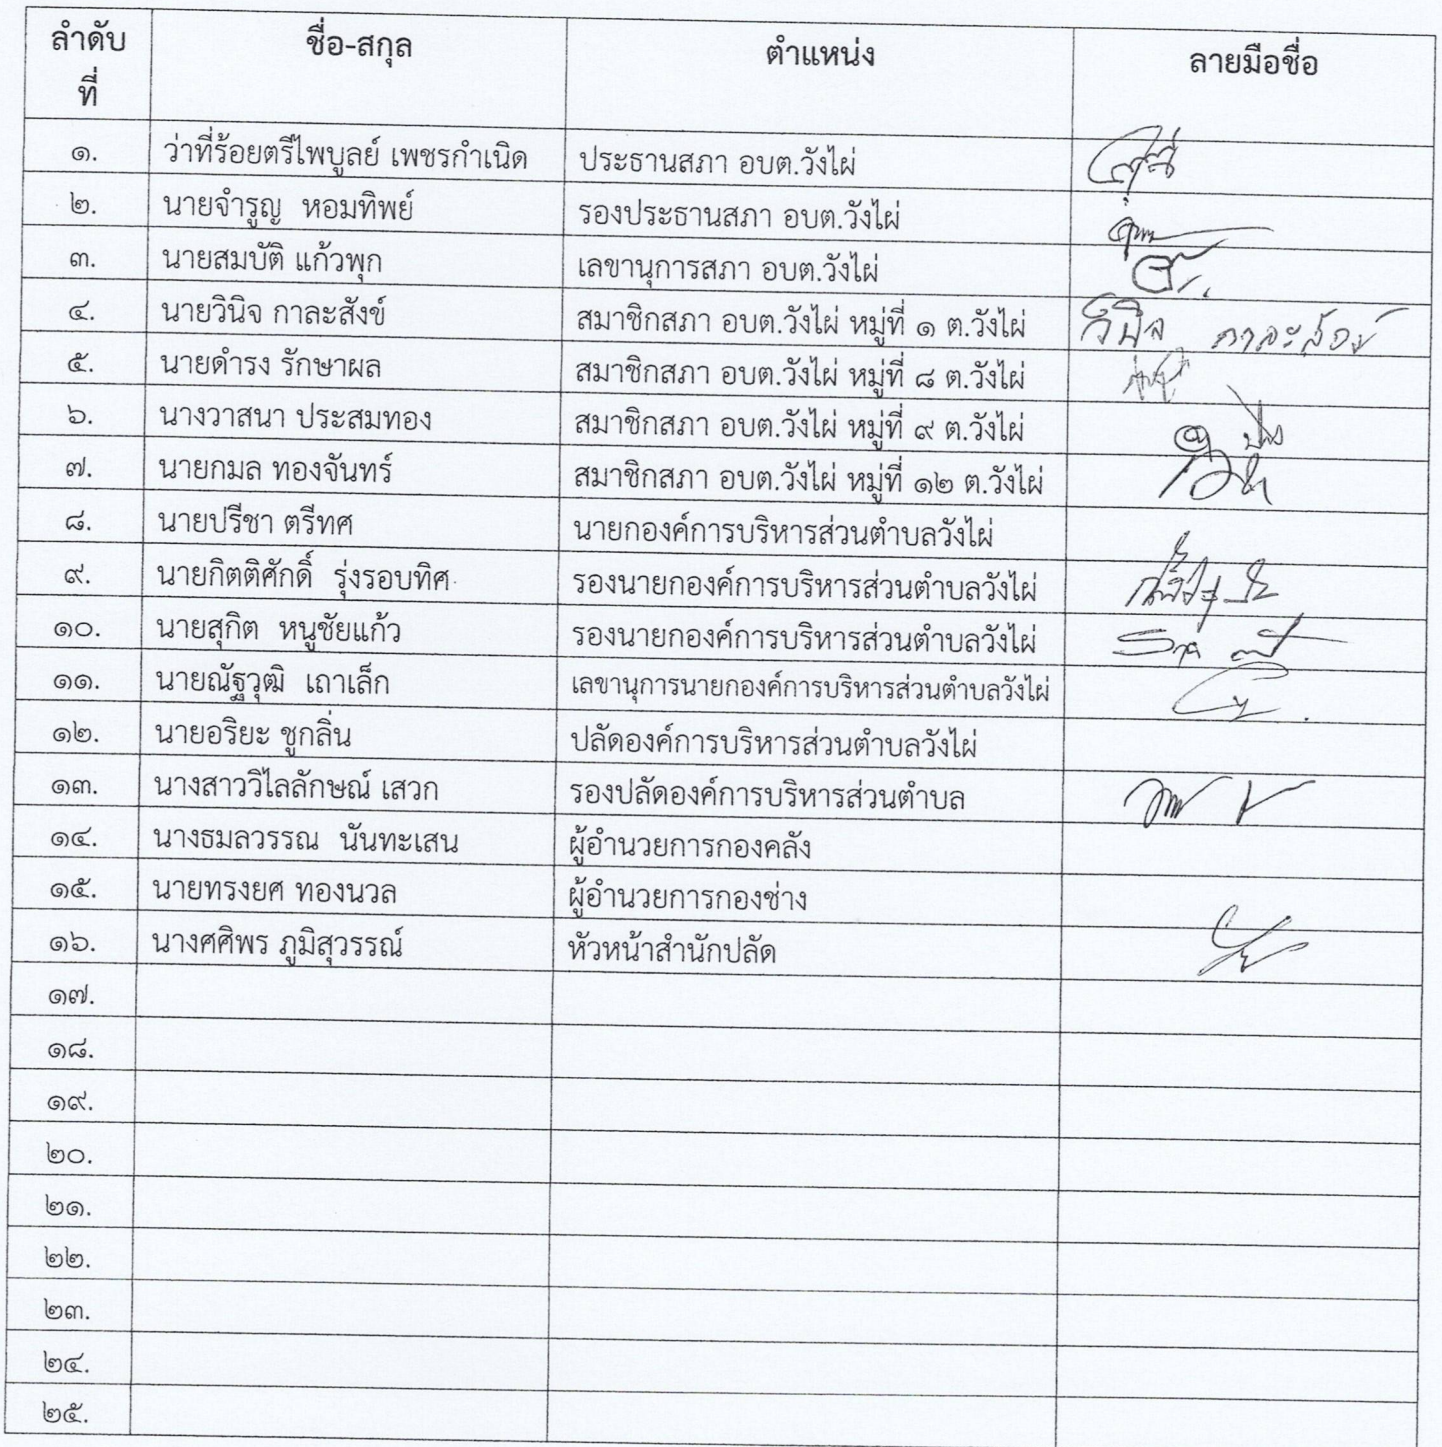 ลำดับที่ ชื่อ-สกุล ตำแหน่ง ลายมือชื่อ
๑. ว่าที่ร้อยตรีไพบูลย์ เพชรกำเนิด ประธานสภา อบต.วังไผ่
๒. นายจำรูญ หอมทิพย์ รองประธานสภา อบต.วังไผ่
๓. นายสมบัติ แก้วพุก เลขานุการสภา อบต.วังไผ่
๔. นายวินิจ กาละสังข์ สมาชิกสภา อบต.วังไผ่ หมู่ที่ ๑ ต.วังไผ่ วินิจ กาละสังข์
๕. นายดำรง รักษาผล สมาชิกสภา อบต.วังไผ่ หมู่ที่ ๘ ต.วังไผ่
๖. นางวาสนา ประสมทอง สมาชิกสภา อบต.วังไผ่ หมู่ที่ ๙ ต.วังไผ่
๗. นายกมล ทองจันทร์ สมาชิกสภา อบต.วังไผ่ หมู่ที่ ๑๒ ต.วังไผ่
๘. นายปรีชา ตรีทศ นายกองค์การบริหารส่วนตำบลวังไผ่
๙. นายกิตติศักดิ์ รุ่งรอบทิศ รองนายกองค์การบริหารส่วนตำบลวังไผ่
๑๐. นายสุกิต หนูชัยแก้ว รองนายกองค์การบริหารส่วนตำบลวังไผ่
๑๑. นายณัฐวุฒิ เถาเล็ก เลขานุการนายกองค์การบริหารส่วนตำบลวังไผ่
๑๒. นายอริยะ ชูกลิ่น ปลัดองค์การบริหารส่วนตำบลวังไผ่
๑๓. นางสาววิไลลักษณ์ เสวก รองปลัดองค์การบริหารส่วนตำบล
๑๔. นางธมลวรรณ นันทะเสน ผู้อำนวยการกองคลัง
๑๕. นายทรงยศ ทองนวล ผู้อำนวยการกองช่าง
๑๖. นางศศิพร ภูมิสุวรรณ์ หัวหน้าสำนักปลัด
๑๗.
๑๘.
๑๙.
๒๐.
๒๑.
๒๒.
๒๓.
๒๔.
๒๕.